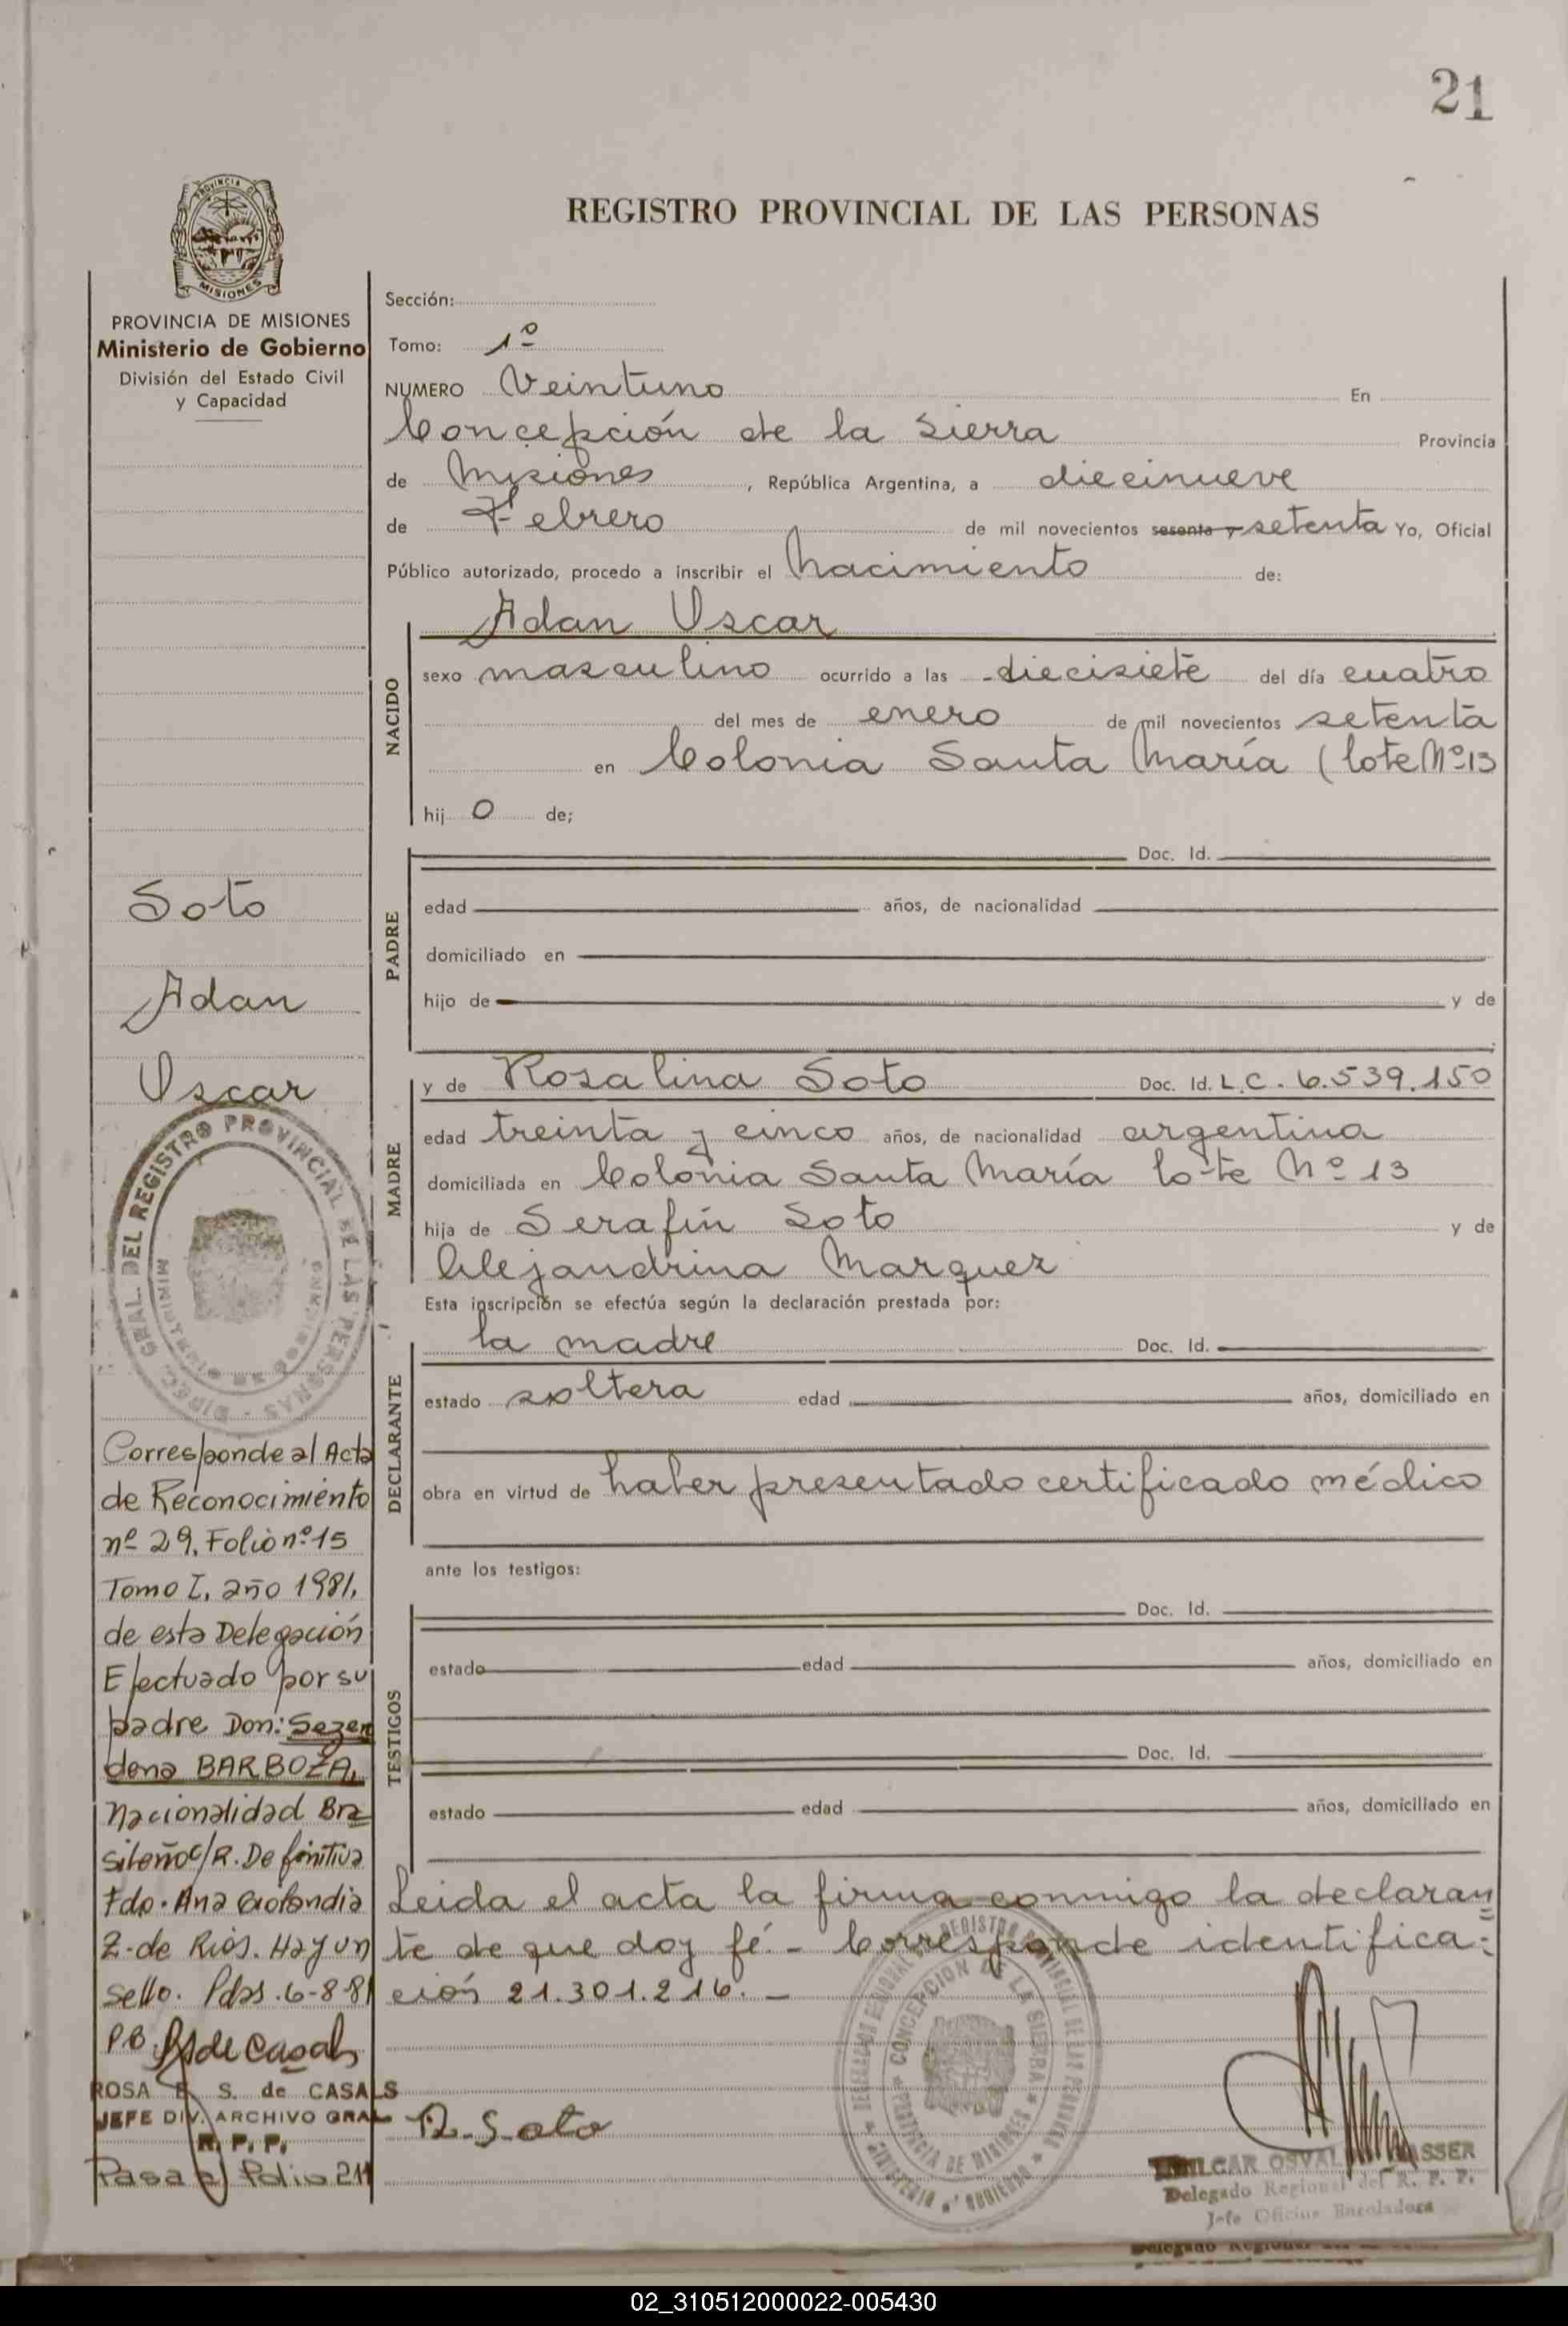 21
PROVINCIA DE
MISIONES
REGISTRO PROVINCIAL DE LAS PERSONAS
PROVINCIA DE MISIONES
Ministerio de Gobierno
División del Estado Civil
y Capacidad
Sección:
Tomo: 1º
NUMERO Veintuno En
Concepción de la Sierra Provincia
de Misiones, República Argentina, a diecinueve
de Febrero de mil novecientos sesenta y setenta Yo, Oficial
Público autorizado, procedo a inscribir el Nacimiento de:
NACIDO
Adan Oscar
sexo masculino ocurrido a las diecisiete del día cuatro
del mes de enero de mil novecientos setenta
en Colonia Santa María (lote Nº 13
hij o de;
PADRE
Doc. Id.
edad años, de nacionalidad
domiciliado en
hijo de y de
Soto
Adan
Oscar
MADRE
y de Rosalina Soto Doc. Id. L.C. 6.539.150
edad treinta y cinco años, de nacionalidad argentina
domiciliada en Colonia Santa María lote Nº 13
hija de Serafín Soto y de
Alejandrina Marquez
Esta inscripción se efectúa según la declaración prestada por:
DECLARANTE
la madre Doc. Id.
estado soltera edad años, domiciliado en
obra en virtud de haber presentado certificado médico
ante los testigos:
TESTIGOS
Doc. Id.
estado edad años, domiciliado en
Doc. Id.
estado edad años, domiciliado en
Leida el acta la firma conmigo la declaran
te de que doy fé.- Corresponde identifica-
ción 21.301.216.-
DIREC. GRAL. DEL REGISTRO PROVINCIAL DE LAS PERSONAS
Corresponde al Acta
de Reconocimiento
nº 29, Folio nº 15
Tomo I, año 1981,
de esta Delegación
Efectuado por su
padre Don: Sezen
dena BARBOZA,
Nacionalidad Bra
sileño c/R. Definitiva
Fdo. Ana
Z. de Rios. Hay un
sello. Pdas. 6-8-81
PB de Casals
ROSA E. S. de CASALS
JEFE DIV. ARCHIVO GRAL
R. P. P.
Pasa al Folio 211
R. Soto
CONCEPCION DE LA SIERRA
PROVINCIA DE MISIONES
OSVAL
Delegado Regional del R. P. P.
Jefe Oficina Enroladora
Delegado Regional
02_310512000022-005430